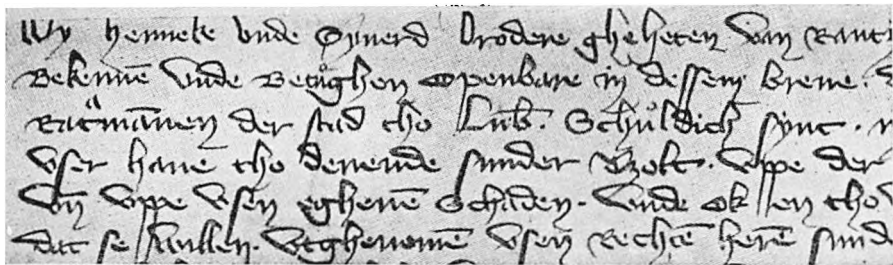 Wy henneke vnde Syuerd brodere gheheten van Rant
Bekennē vnde Betughen openbare in dessem breue.
Ratmānen der stad tho Lub̄. Schuldich synt.
vser haue tho denende sunder vppe der
vn̄ vppe vsen eghenē Schaden. vnde ok en tho
dat se willen. vtghenomē vsen Rechtē herē sund